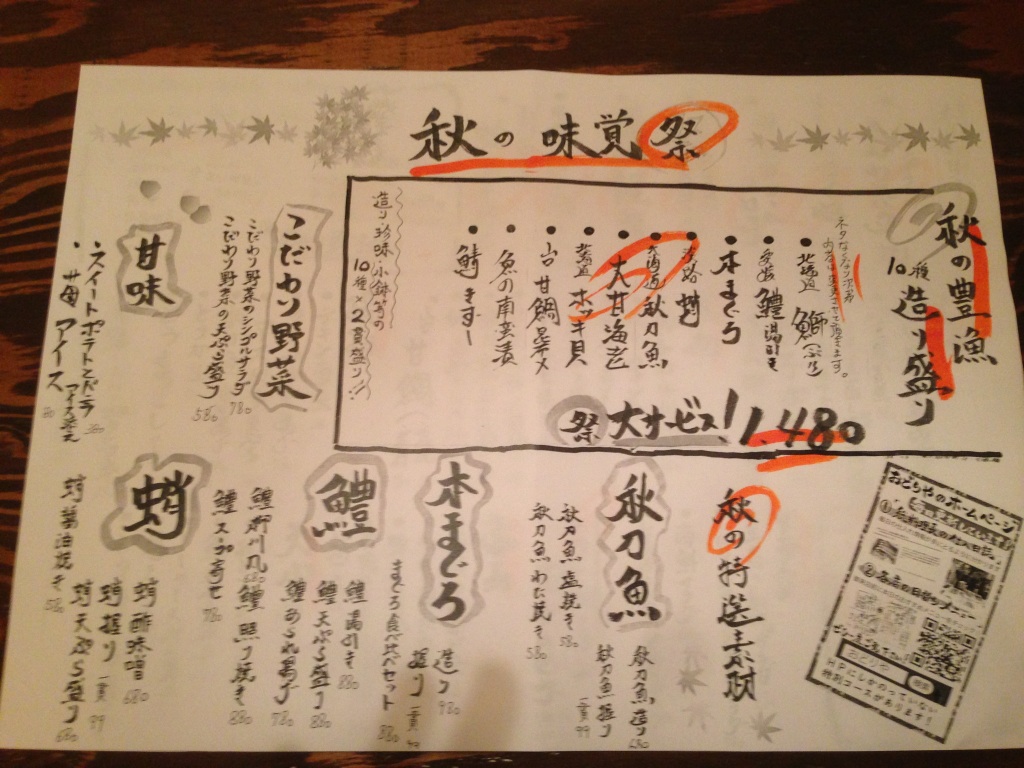 秋の味覚祭
秋の豊漁
10種造り盛り
ネタなくなり次第
内容は変更させて頂きます。
北海道 鰤(ぶり)
鱧湯引き
本まぐろ
淡路 蛸
北海道 秋刀魚
大甘海老
北海道 ホッキ貝
甘鯛昆布〆
魚の南蛮漬
鯖きずし
造り・珍味・小鉢等の
10種×2貫盛り!!
祭 大サービス! 1,480
こだわり野菜
こだわり野菜のシンプルサラダ 780
こだわり野菜の天ぷら盛り 580
甘味
スイートポテトとバニラアイス添え
苺アイス
秋の特選素材
秋刀魚
秋刀魚造り 680
秋刀魚握り 一貫 99
秋刀魚塩焼き 580
秋刀魚わた焼き 580
本まぐろ
造り 980
握り 一貫 99
まぐろ食べ比べセット 880
鱧
鱧湯引き 880
鱧天ぷら盛り 880
鱧あられ揚げ 780
鱧柳川風 680
鱧照り焼き 880
鱧スープ寄せ 780
蛸
蛸酢味噌 680
蛸握り 一貫 99
蛸天ぷら盛り 680
蛸醤油焼き 580
おどりやのホームページ
おどりや
検索
HPにしかのっていない
特別コースがあります!